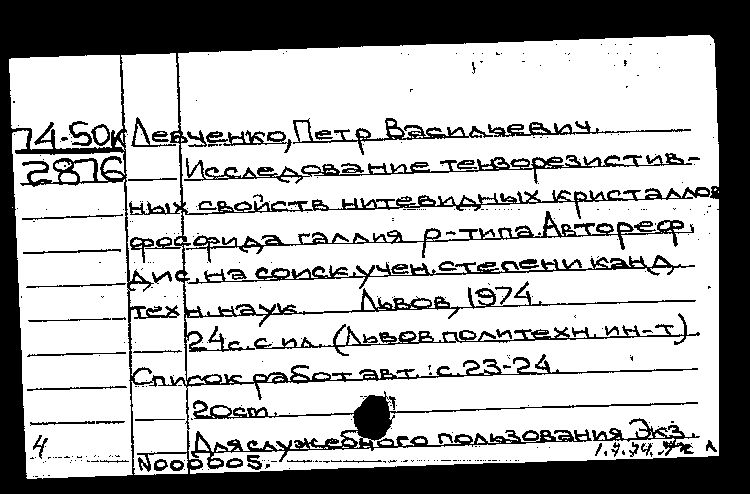 74-50К Левченко, Петр Васильевич.
2876 Исследование тензорезистив-
ных свойств нитевидных кристаллов
фосфида галлия p-типа. Автореф.
дис. на соиск. учен. степени канд.
техн. наук. Львов, 1974.
24с. с ил. (Львов. политехн. ин-т).
Список работ авт.: с. 23-24.
20 cm.
4 Для служебного пользования Экз.
N000005.